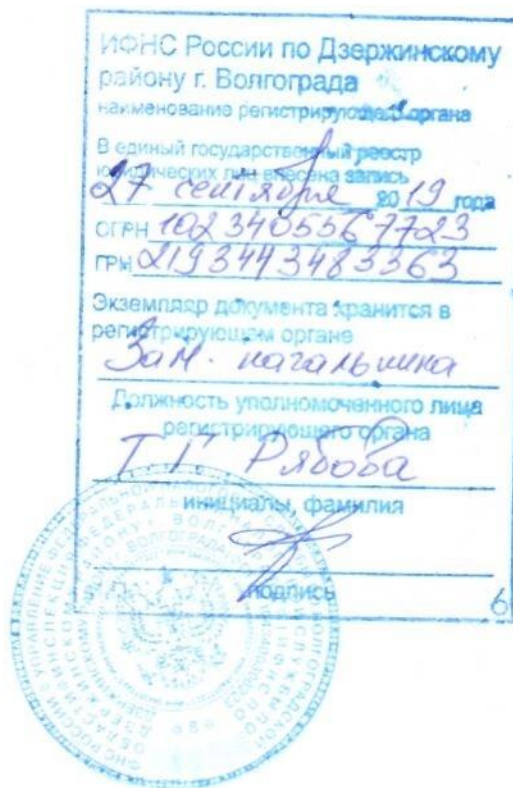 ИФНС России по Дзержинскому
району г. Волгограда
наименование регистрирующего органа
В единый государственный реестр
юридических лиц внесена запись
27 сентября 2019 года
ОГРН 1023405567723
ГРН 2193443483363
Экземпляр документа хранится в
регистрирующем органе
Зам. начальника
Должность уполномоченного лица
регистрирующего органа
Т Г Рябова
инициалы, фамилия
подпись
6